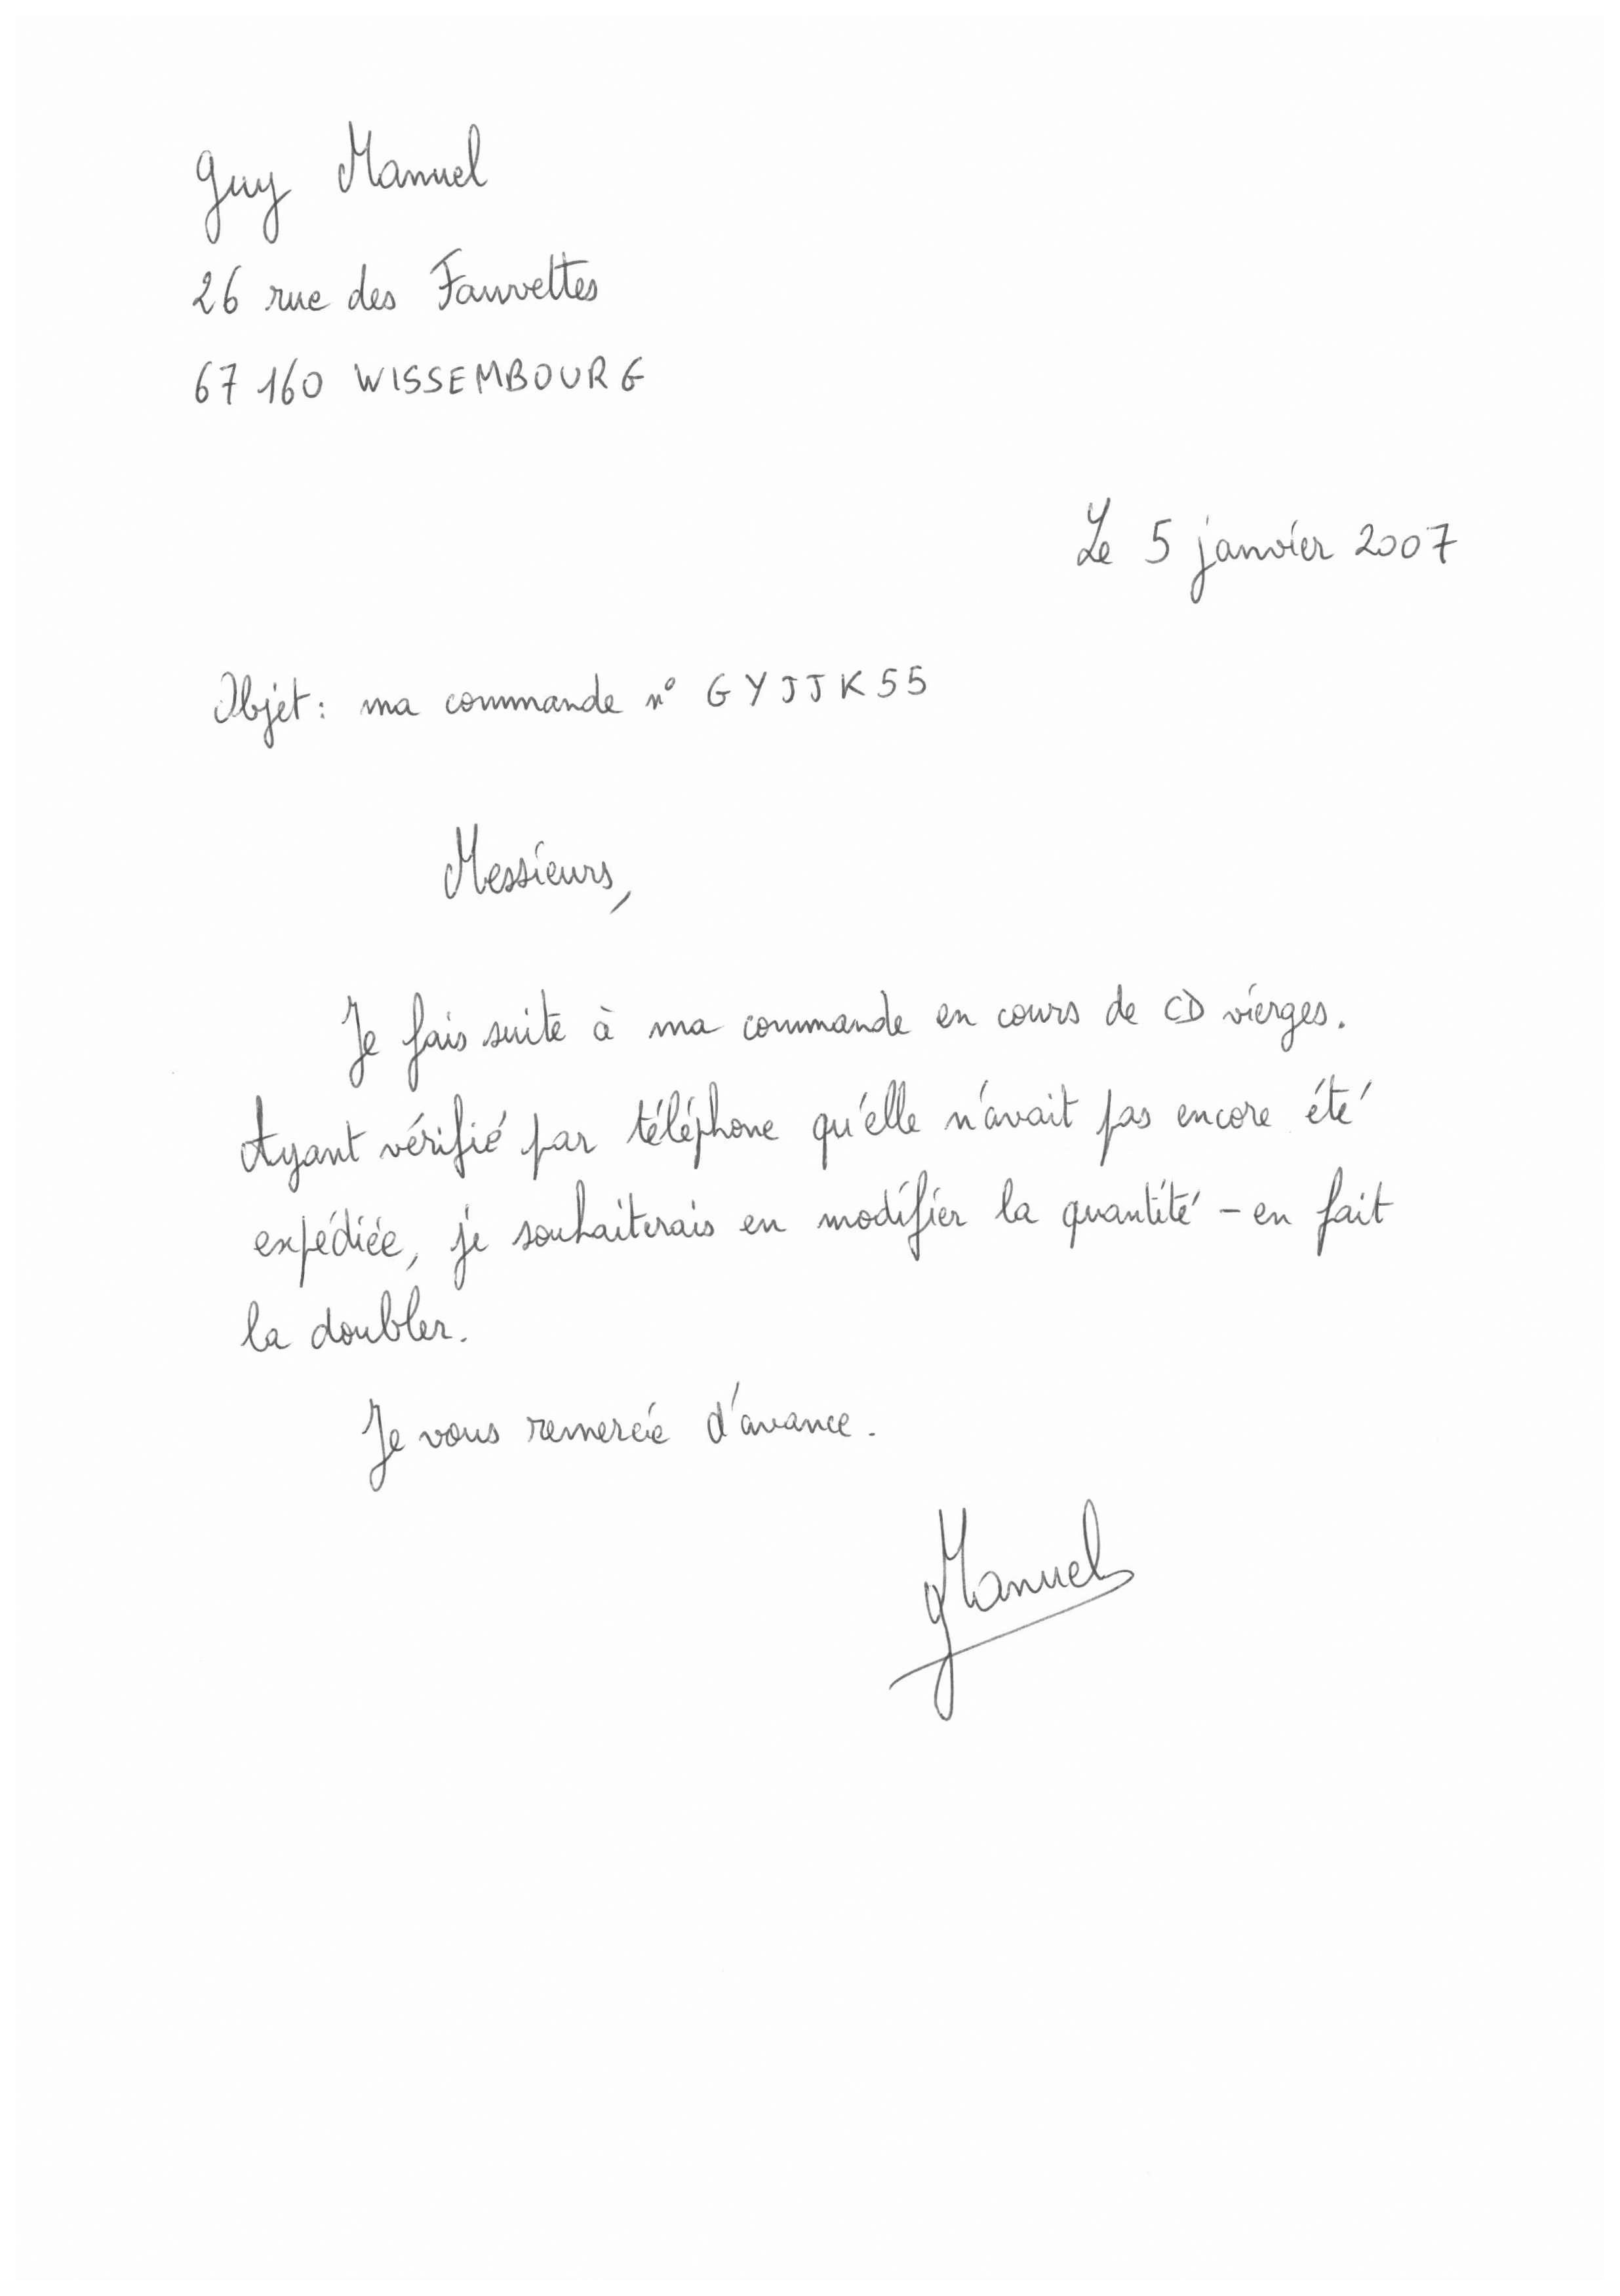 Guy Manuel
26 rue des Fauvettes
67160 WISSEMBOURG
Le 5 janvier 2007
Objet : ma commande n° GYJJK55
Messieurs,
Je fais suite à ma commande en cours de CD vierges.
Ayant vérifié par téléphone qu'elle n'avait pas encore été
expédiée, je souhaiterais en modifier la quantité - en fait
la doubler.
Je vous remercie d'avance.
Manuel